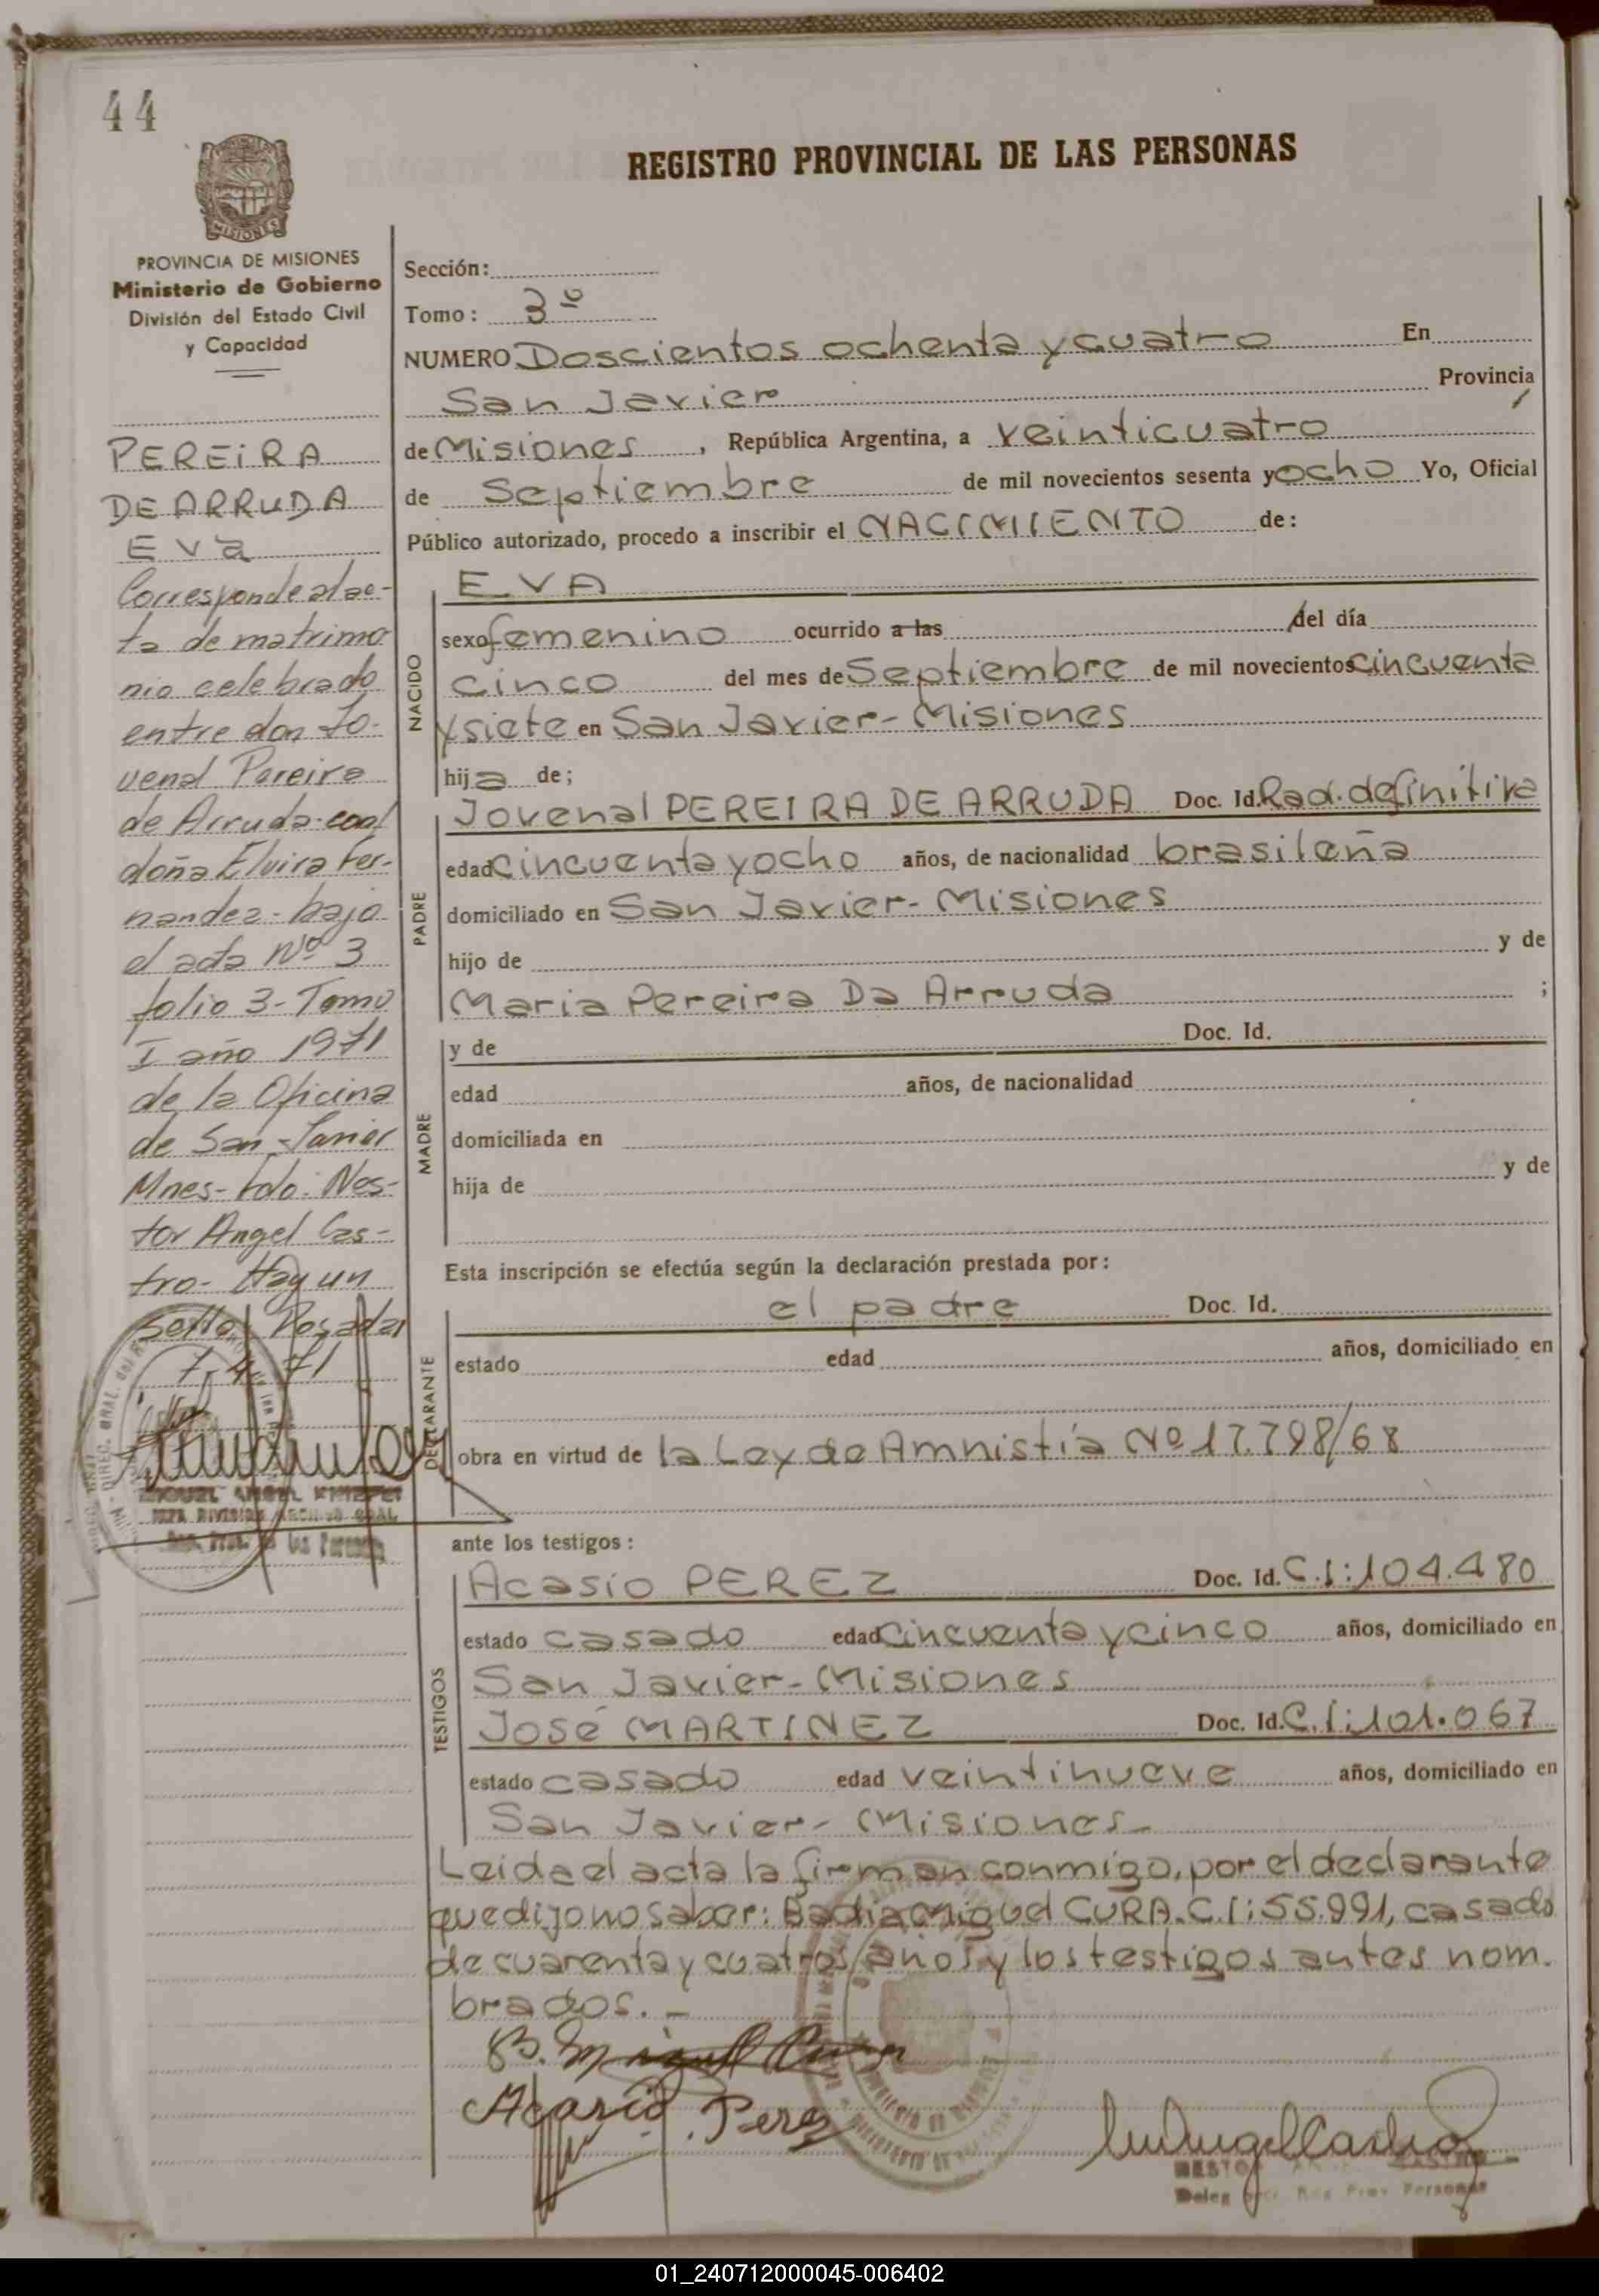 44
REGISTRO PROVINCIAL DE LAS PERSONAS
MISIONES
PROVINCIA DE MISIONES
Ministerio de Gobierno
División del Estado Civil
y Capacidad
PEREIRA
DE ARRUDA
Eva
Corresponde al ac-
ta de matrimo
nio celebrado
entre don Jo-
venal Pereira
de Arruda con
doña Elvira Fer-
nandez - bajo
el acta Nº 3
folio 3 - Tomo
I año 1971
de la Oficina
de San Javier
Mnes - Fdo: Nes-
tor Angel Cas-
tro - Hay un
sello Posadas
7-4-71
MIGUEL ANGEL
JEFE DIVISION ARCHIVO GRAL
Reg. Prov. de las Personas
Sección:
Tomo: 3º
NUMERO Doscientos ochenta y cuatro En
San Javier Provincia
de Misiones, República Argentina, a veinticuatro
de Septiembre de mil novecientos sesenta y ocho Yo, Oficial
Público autorizado, procedo a inscribir el NACIMIENTO de:
NACIDO
EVA
sexo femenino ocurrido a las del día
cinco del mes de Septiembre de mil novecientos cincuenta
y siete en San Javier - Misiones
hija de;
PADRE
Jovenal PEREIRA DE ARRUDA Doc. Id. Rad. definitiva
edad cincuenta y ocho años, de nacionalidad brasileña
domiciliado en San Javier - Misiones
hijo de y de
Maria Pereira Da Arruda ;
MADRE
y de Doc. Id.
edad años, de nacionalidad
domiciliada en
hija de y de
Esta inscripción se efectúa según la declaración prestada por:
DECLARANTE
el padre Doc. Id.
estado edad años, domiciliado en
obra en virtud de la Ley de Amnistía Nº 17.798/68
ante los testigos:
TESTIGOS
Acasio PEREZ Doc. Id. C.I: 104.480
estado casado edad cincuenta y cinco años, domiciliado en
San Javier - Misiones
José MARTINEZ Doc. Id. C.I: 101.067
estado casado edad veintinueve años, domiciliado en
San Javier - Misiones -
Leida el acta la firman conmigo, por el declarante
que dijo no saber: Badia Miguel CURA. C.I: 55.991, casado
de cuarenta y cuatro años y los testigos antes nom.
brados. -
B. Miguel Cura
Acasio Perez
NESTOR CASTRO
Deleg Reg Prov Personas
01_240712000045-006402